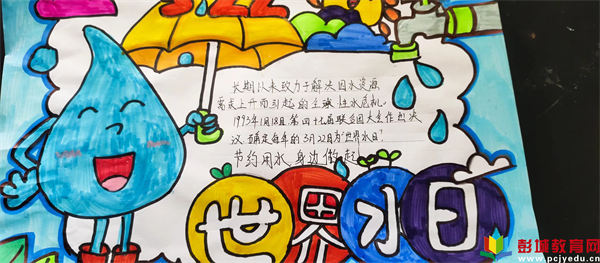 3.22
长期以来致力于解决因水资源
需求上升而引起的全球性水危机。
1993年1月18日第四十七届联合国大会作出决
议 确定每年的3月22日为"世界水日"
节约用水,身边做起
世界水日
彭城教育网
www.pcjyedu.cn